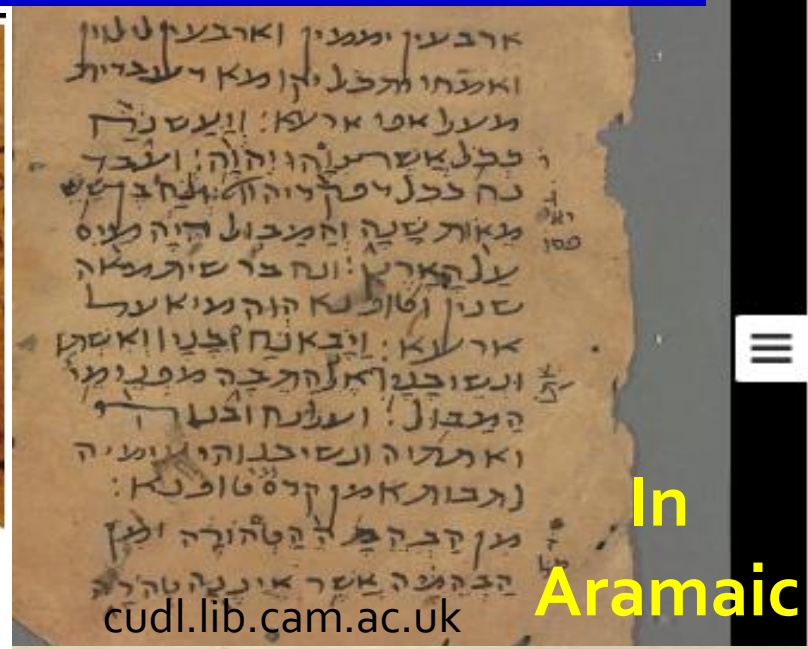 ארבעין יממין וארבעין לילוון
ואמחי ית כל יקומא דעבדית
מעל אפי ארעא: ויעש נח
ככל אשר צוהו יהוה: ועבד
נח ככל דפקדיה ונח בן שש
מאות שנה והמבול היה מים
על הארץ: ונח בר שית מאה
שנין וטופנא הוה מיא על
ארעא: ויבא נח ובניו ואשתו
ונשי בניו אל התבה מפני מי
המבול: ועל נח
ואתתיה ונשי בנוהי עימיה
לתבותא מן קדם טופנא:
מן הבהמה הטהורה ומן
הבהמה אשר איננה טהרה
In
Aramaic
cudl.lib.cam.ac.uk